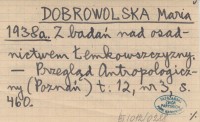 DOBROWOLSKA Maria
1938a. Z badań nad osad-
nictwem Łemkowszczyzny.
— Przegląd Antropologicz-
ny (Poznań) t. 12, nr 3, s.
460.